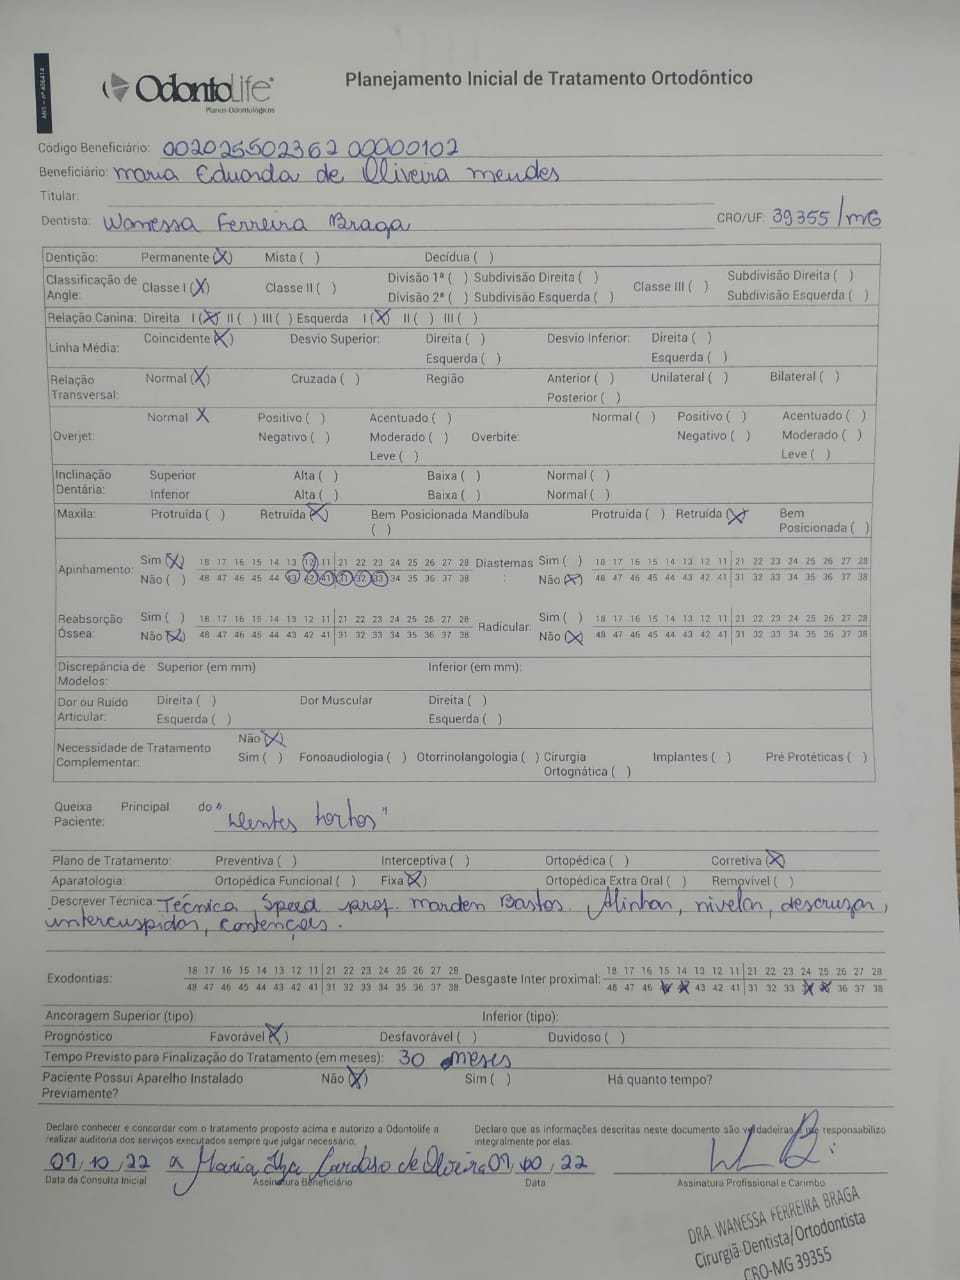 ANS - nº 406414
OdontoLife
Planos Odontológicos
Planejamento Inicial de Tratamento Ortodôntico
Código Beneficiário: 002025502362 00000102
Beneficiário: Maria Eduarda de Oliveira Mendes
Titular:
Dentista: Wanessa Ferreira Braga CRO/UF: 39355/MG
Dentição: Permanente (X) Mista ( ) Decídua ( )
Classificação de Angle: Classe I (X) Classe II ( ) Divisão 1ª ( ) Subdivisão Direita ( ) Classe III ( ) Subdivisão Direita ( )
Divisão 2ª ( ) Subdivisão Esquerda ( ) Subdivisão Esquerda ( )
Relação Canina: Direita I (X) II ( ) III ( ) Esquerda I (X) II ( ) III ( )
Linha Média: Coincidente (X) Desvio Superior: Direita ( ) Desvio Inferior: Direita ( )
Esquerda ( ) Esquerda ( )
Relação Transversal: Normal (X) Cruzada ( ) Região Anterior ( ) Unilateral ( ) Bilateral ( )
Posterior ( )
Normal X Positivo ( ) Acentuado ( ) Normal ( ) Positivo ( ) Acentuado ( )
Overjet: Negativo ( ) Moderado ( ) Overbite: Negativo ( ) Moderado ( )
Leve ( ) Leve ( )
Inclinação Dentária: Superior Alta ( ) Baixa ( ) Normal ( )
Inferior Alta ( ) Baixa ( ) Normal ( )
Maxila: Protruída ( ) Retruída (X) Bem Posicionada ( ) Mandíbula Protruída ( ) Retruída (X) Bem Posicionada ( )
Apinhamento: Sim (X) 18 17 16 15 14 13 12 11 21 22 23 24 25 26 27 28 Diastemas : Sim ( ) 18 17 16 15 14 13 12 11 21 22 23 24 25 26 27 28
Não ( ) 48 47 46 45 44 43 42 41 31 32 33 34 35 36 37 38 Não (X) 48 47 46 45 44 43 42 41 31 32 33 34 35 36 37 38
Reabsorção Óssea: Sim ( ) 18 17 16 15 14 13 12 11 21 22 23 24 25 26 27 28 Radicular: Sim ( ) 18 17 16 15 14 13 12 11 21 22 23 24 25 26 27 28
Não (X) 48 47 46 45 44 43 42 41 31 32 33 34 35 36 37 38 Não (X) 48 47 46 45 44 43 42 41 31 32 33 34 35 36 37 38
Discrepância de Modelos: Superior (em mm) Inferior (em mm):
Dor ou Ruído Articular: Direita ( ) Dor Muscular Direita ( )
Esquerda ( ) Esquerda ( )
Necessidade de Tratamento Complementar: Não (X)
Sim ( ) Fonoaudiologia ( ) Otorrinolangologia ( ) Cirurgia Ortognática ( ) Implantes ( ) Pré Protéticas ( )
Queixa Principal do Paciente: "Dentes tortos"
Plano de Tratamento: Preventiva ( ) Interceptiva ( ) Ortopédica ( ) Corretiva (X)
Aparatologia: Ortopédica Funcional ( ) Fixa (X) Ortopédica Extra Oral ( ) Removível ( )
Descrever Técnica: Técnica Speed prof. Marden Bastos. Alinhar, nivelar, descruzar,
intercuspidar, contenções.
Exodontias: 18 17 16 15 14 13 12 11 21 22 23 24 25 26 27 28 Desgaste Inter proximal: 18 17 16 15 14 13 12 11 21 22 23 24 25 26 27 28
48 47 46 45 44 43 42 41 31 32 33 34 35 36 37 38 48 47 46 45 44 43 42 41 31 32 33 34 35 36 37 38
Ancoragem Superior (tipo): Inferior (tipo):
Prognóstico Favorável (X) Desfavorável ( ) Duvidoso ( )
Tempo Previsto para Finalização do Tratamento (em meses): 30 meses
Paciente Possui Aparelho Instalado Previamente? Não (X) Sim ( ) Há quanto tempo?
Declaro conhecer e concordar com o tratamento proposto acima e autorizo a Odontolife a
realizar auditoria dos serviços executados sempre que julgar necessário.
Declaro que as informações descritas neste documento são verdadeiras e me responsabilizo
integralmente por elas.
07,10,22 x Maria Ilza Cardoso de Oliveira 07,10,22
Data da Consulta Inicial Assinatura Beneficiário Data Assinatura Profissional e Carimbo
DRA. WANESSA FERREIRA BRAGA
Cirurgiã-Dentista/Ortodontista
CRO-MG 39355